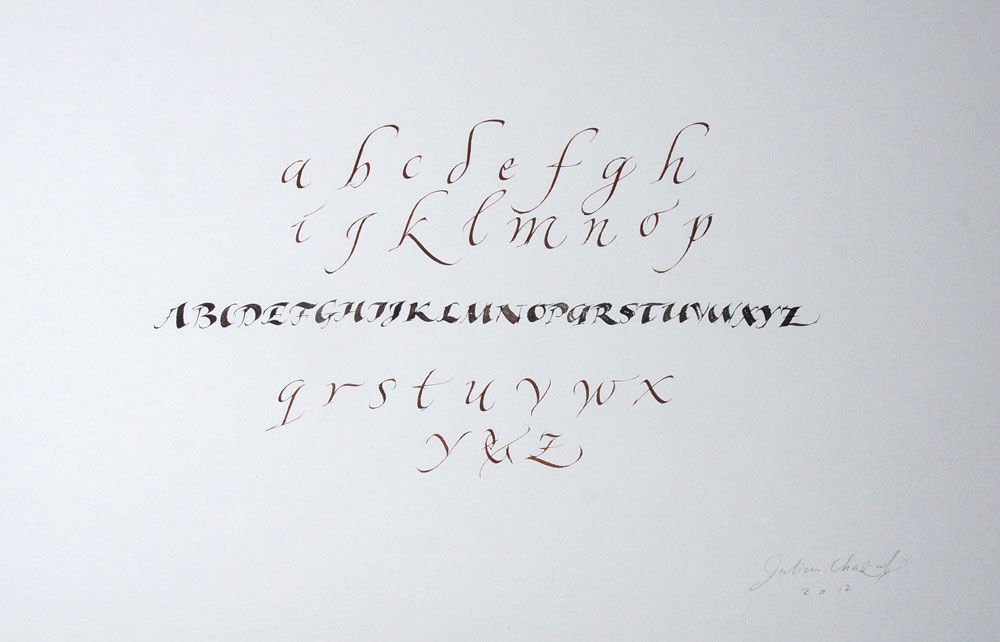 a b c d e f g h
i j k l m n o p
ABCDEFGHIJKLMNOPQRSTUVWXYZ
q r s t u v w x
y & z
Julien Chazal
2017